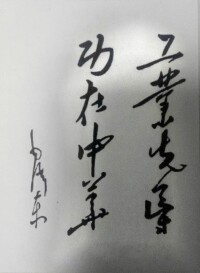 工業先峯
功在中華
毛澤東